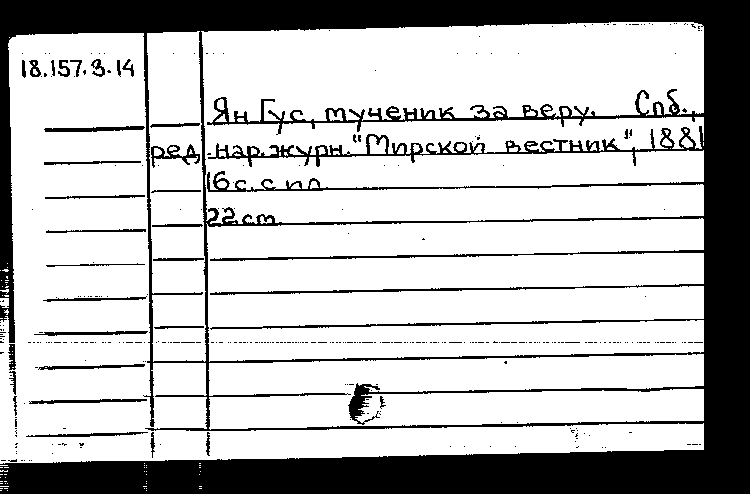 18.157.3.14
Ян Гус, мученик за веру. Спб.,
ред. нар. журн. "Мирской вестник", 1881
16 с. с ил.
22 см.